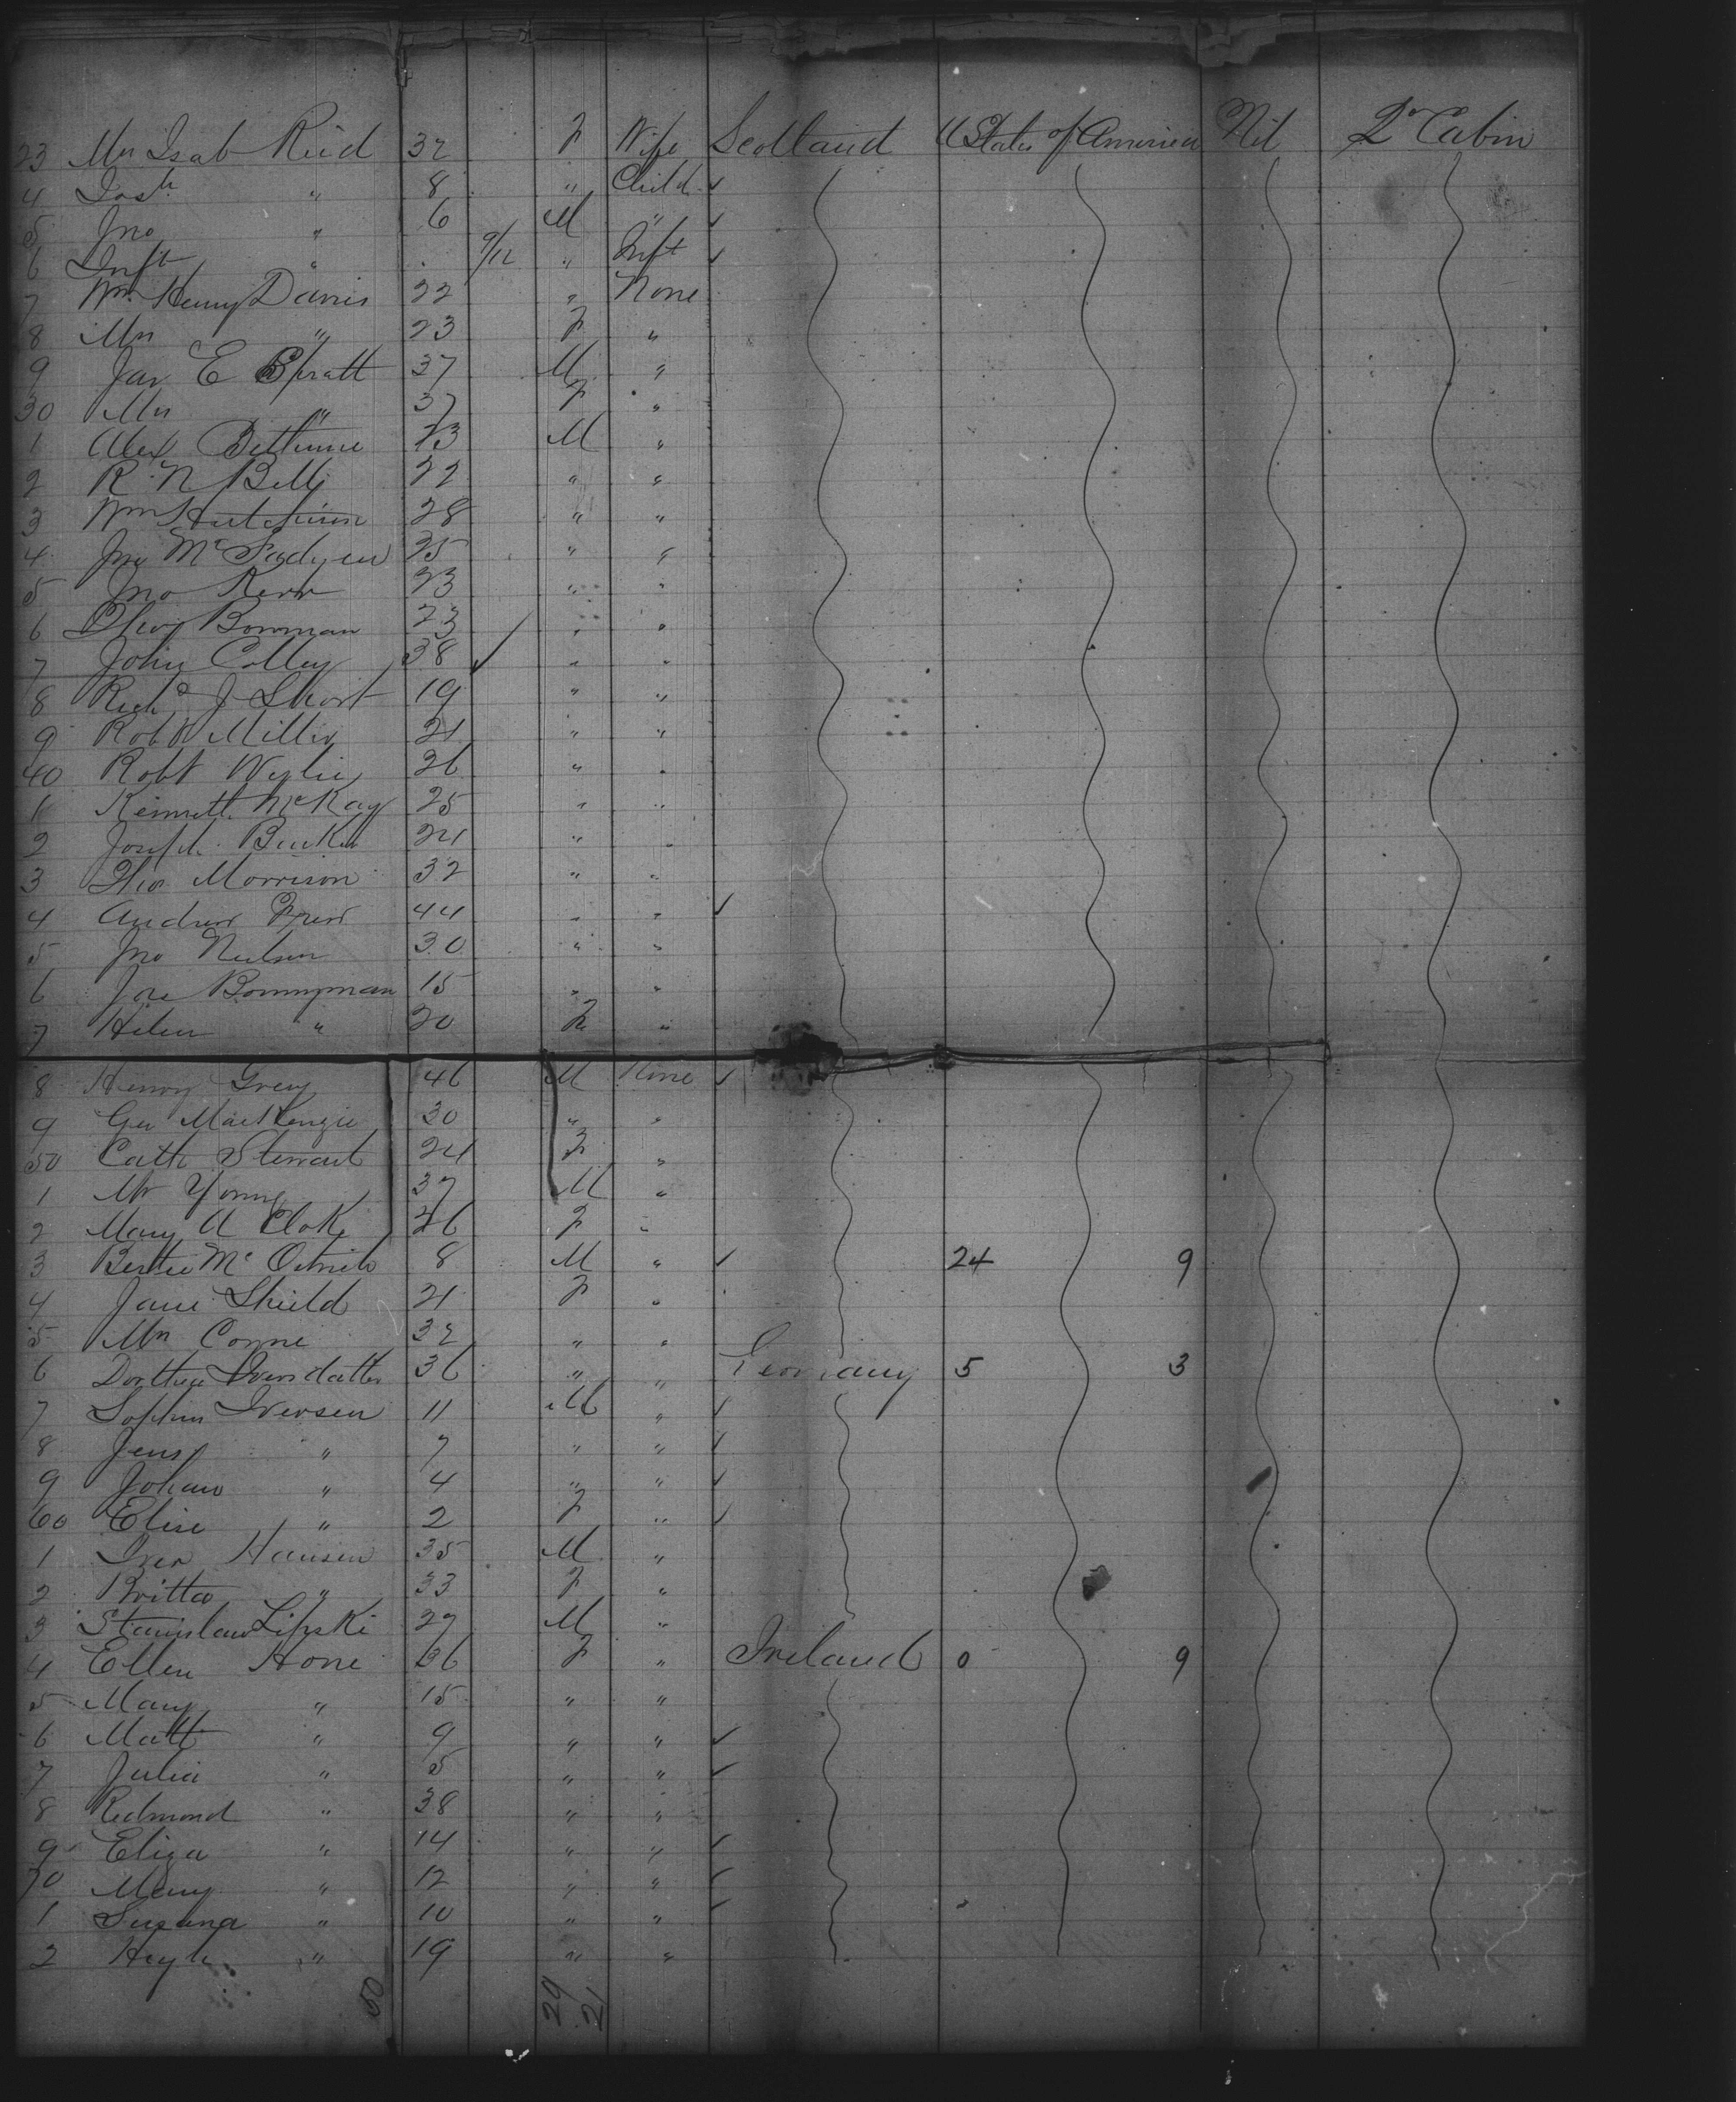 23 Mrs Isab Reid 32 F Wife Scotland U States of America Nil 2nd Cabin
4 " 8 " Child ✓
5 Jno " 6 M " ✓
6 Inft " 9/12 " Inft ✓
7 Wm Henry Davis 22 " None
8 Mrs " 23 F "
9 Jas E Spratt 37 M "
30 Mrs " 37 F "
1 Alex Bethune 23 M "
2 R. N Bell 22 " "
3 Wm Hutchison 28 " "
4 Jno McFadyen 25 " "
5 Jno Kerr 23 " "
6 Bowman 23 " "
7 John Colley 38 ✓ " "
8 Richd J Short 19 " "
9 Robt Miller 21 " "
40 Robt Wylie 26 " "
1 Kennett McKay 25 " "
2 Joseph 24 " "
3 Morrison 32 " "
4 Andrew 44 " " ✓
5 Jno Neilson 30 " "
6 Bonnyman 15 " "
7 Helen " 20 F "
8 Henry Grey 46 M None ✓
9 Geo MacKenzie 30 " "
50 Cath Stewart 24 F "
1 Mr Young 37 M "
2 Mary A 26 F "
3 Bertie Mc 8 M " ✓ 24 9
4 Jane Shield 21 F "
5 Mrs 32 " "
6 Dorthea 36 " " Germany 5 3
7 Iversen 11 M " ✓
8 Jens " 7 " " ✓
9 Johan " 4 " " ✓
60 Elise " 2 F " ✓
1 Iver Hansen 35 M "
2 Britta " 33 F "
3 Stanislaw Lipski 27 M "
4 Ellen Hone 36 F " Ireland 0 9
5 Mary " 15 " "
6 Matt " 9 " " ✓
7 Julia " 5 " " ✓
8 Redmond " 38 " "
9 Eliza " 14 " " ✓
70 Mary " 12 " " ✓
1 Susana " 10 " " ✓
2 Hugh " 19 " "
50 29 21